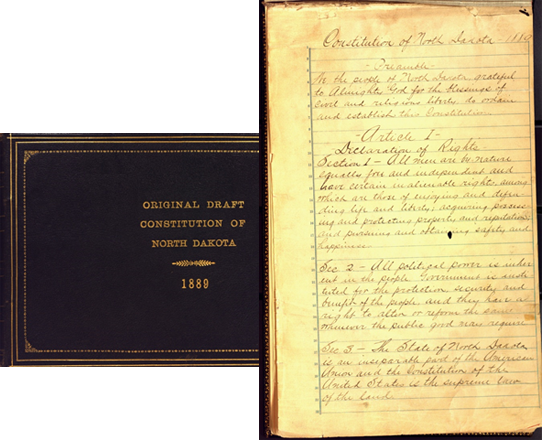 ORIGINAL DRAFT
CONSTITUTION OF
NORTH DAKOTA
1889
Constitution of North Dakota - 1889
- Preamble -
We the people of North Dakota grateful
to Almighty God for the blessings of
civil and religious liberty do ordain
and establish this Constitution
- Article I -
Declaration of Rights
Section 1 - All men are by nature
equally free and independent and
have certain inalienable rights among
which are those of enjoying and defen
ding life and liberty; acquiring possess
ing and protecting property and reputation;
and pursuing and obtaining safety and
happiness.
Sec 2 - All political power is inher
ent in the people Government is insti
tuted for the protection security and
benefit of the people and they have a
right to alter or reform the same
whenever the public good may require
Sec 3 - The State of North Dakota
is an inseparable part of the American
Union and the Constitution of the
United States is the supreme law
of the land.